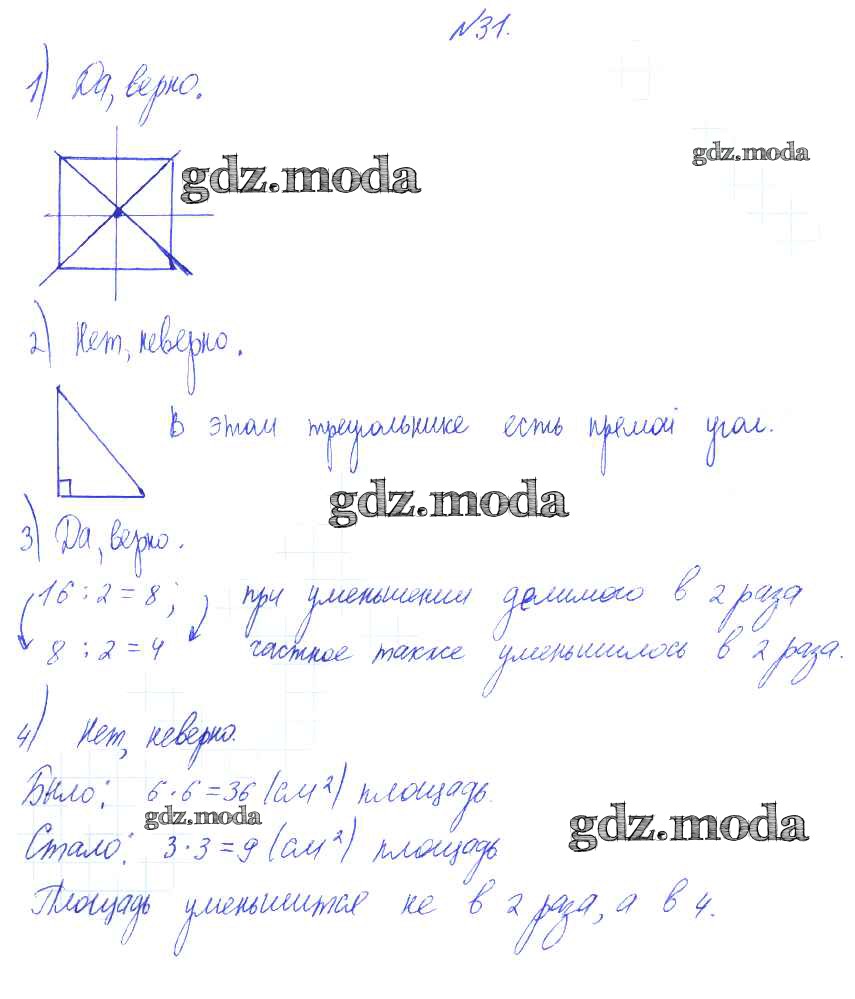 №31.
1) Да, верно.
gdz.moda
gdz.moda
2) Нет, неверно.
В этом треугольнике есть прямой угол.
gdz.moda
3) Да, верно.
16 : 2 = 8; при уменьшении делимого в 2 раза
8 : 2 = 4 частное также уменьшилось в 2 раза.
4) Нет, неверно.
Было: 6·6=36 (см²) площадь.
gdz.moda
gdz.moda
Стало: 3·3=9 (см²) площадь
Площадь уменьшится не в 2 раза, а в 4.